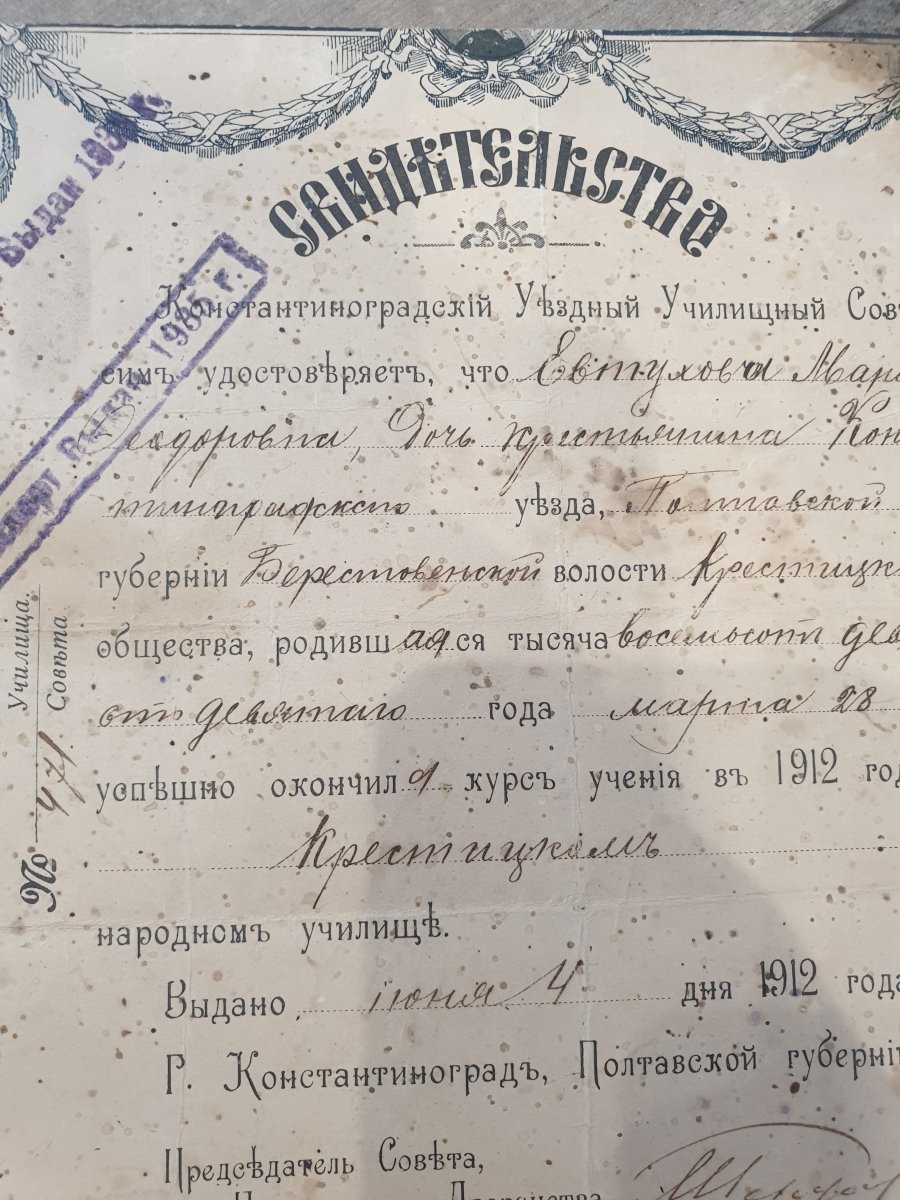 СВИДѢТЕЛЬСТВО
Выдан 193
Выдан 1935 г.
Константиноградскій Уѣздный Училищный Совѣ
симъ удостовѣряетъ, что Евтухова Мар
Ѳеодоровна, Дочь крестьянина Кон
тиноградскаго уѣзда, Полтавской
губерніи Берестовенской волости Крестищк
общества, родившаяся тысяча восемьсот дев
сто девятаго года марта 28
успѣшно окончиля курсъ ученія въ 1912 го
Крестищкомъ
народномъ училищѣ.
Выдано іюня 4 дня 1912 года
Г. Константиноградъ, Полтавской губерні
Предсѣдатель Совѣта,
Дворянства
Училища.
Совѣта
№ 471